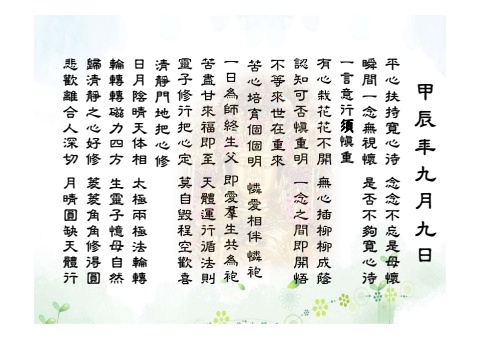 甲辰年九月九日
平心扶持寬心待 念念不忘是母懷
瞬間一念無視懷 是否不夠寬心待
一言意行須慎重
有心栽花花不開 無心插柳柳成蔭
認知可否慎重明 一念之間即開悟
不等來世在重來
苦心培育個個明 憐愛相伴 憐袍
一日為師終生父 即愛羣生共為袍
苦盡甘來福即至 天體運行循法則
靈子修行把心定 莫自毀程空歡喜
清靜門地把心修
日月陰晴天体相 太極兩極法輪轉
輪轉轉磁力四方 生靈子憶母自然
歸清靜之心好修 菱菱角角修得圓
悲歡離合人深切 月晴圓缺天體行